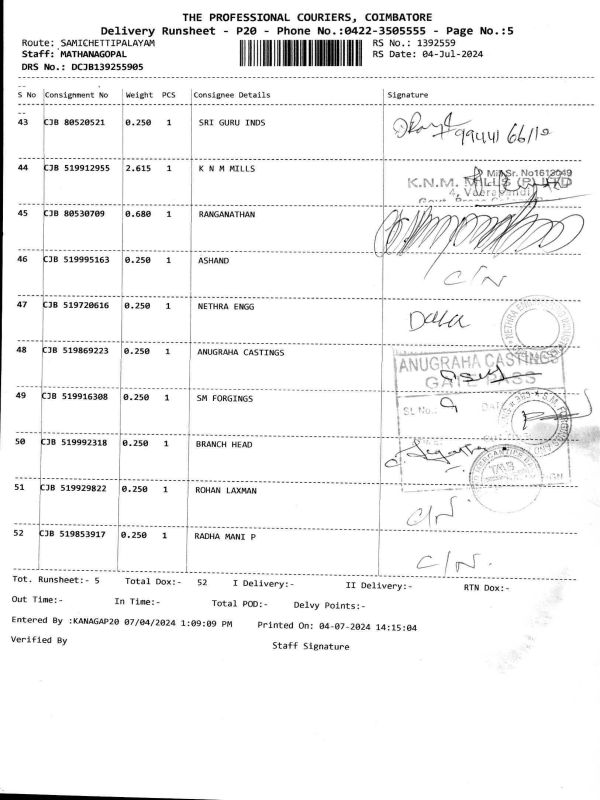 THE PROFESSIONAL COURIERS, COIMBATORE
Delivery Runsheet - P20 - Phone No.:0422-3505555 - Page No.:5
Route: SAMICHETTIPALAYAM RS No.: 1392559
Staff: MATHANAGOPAL RS Date: 04-Jul-2024
DRS No.: DCJB139255905
S No Consignment No Weight PCS Consignee Details Signature
43 CJB 80520521 0.250 1 SRI GURU INDS
44 CJB 519912955 2.615 1 K N M MILLS K.N.M. MILLS (P) LTD
45 CJB 80530709 0.680 1 RANGANATHAN
46 CJB 519995163 0.250 1 ASHAND C/N
47 CJB 519720616 0.250 1 NETHRA ENGG
48 CJB 519869223 0.250 1 ANUGRAHA CASTINGS ANUGRAHA CASTINGS
GATE PASS
49 CJB 519916308 0.250 1 SM FORGINGS SL No.: 9
50 CJB 519992318 0.250 1 BRANCH HEAD
51 CJB 519929822 0.250 1 ROHAN LAXMAN C/N
52 CJB 519853917 0.250 1 RADHA MANI P C/N.
Tot. Runsheet:- 5 Total Dox:- 52 I Delivery:- II Delivery:- RTN Dox:-
Out Time:- In Time:- Total POD:- Delvy Points:-
Entered By :KANAGAP20 07/04/2024 1:09:09 PM Printed On: 04-07-2024 14:15:04
Verified By Staff Signature